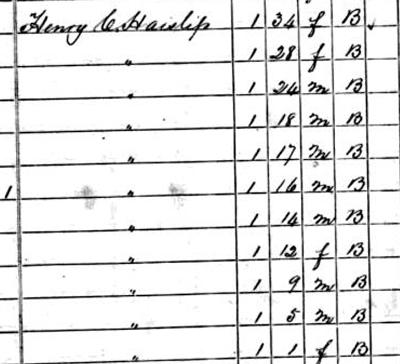 Henry C. Haislip 1 34 f B
" 1 28 f B
" 1 24 m B
" 1 18 m B
" 1 17 m B
1 " 1 16 m B
" 1 14 m B
" 1 12 f B
" 1 9 m B
" 1 5 m B
" 1 1 f B